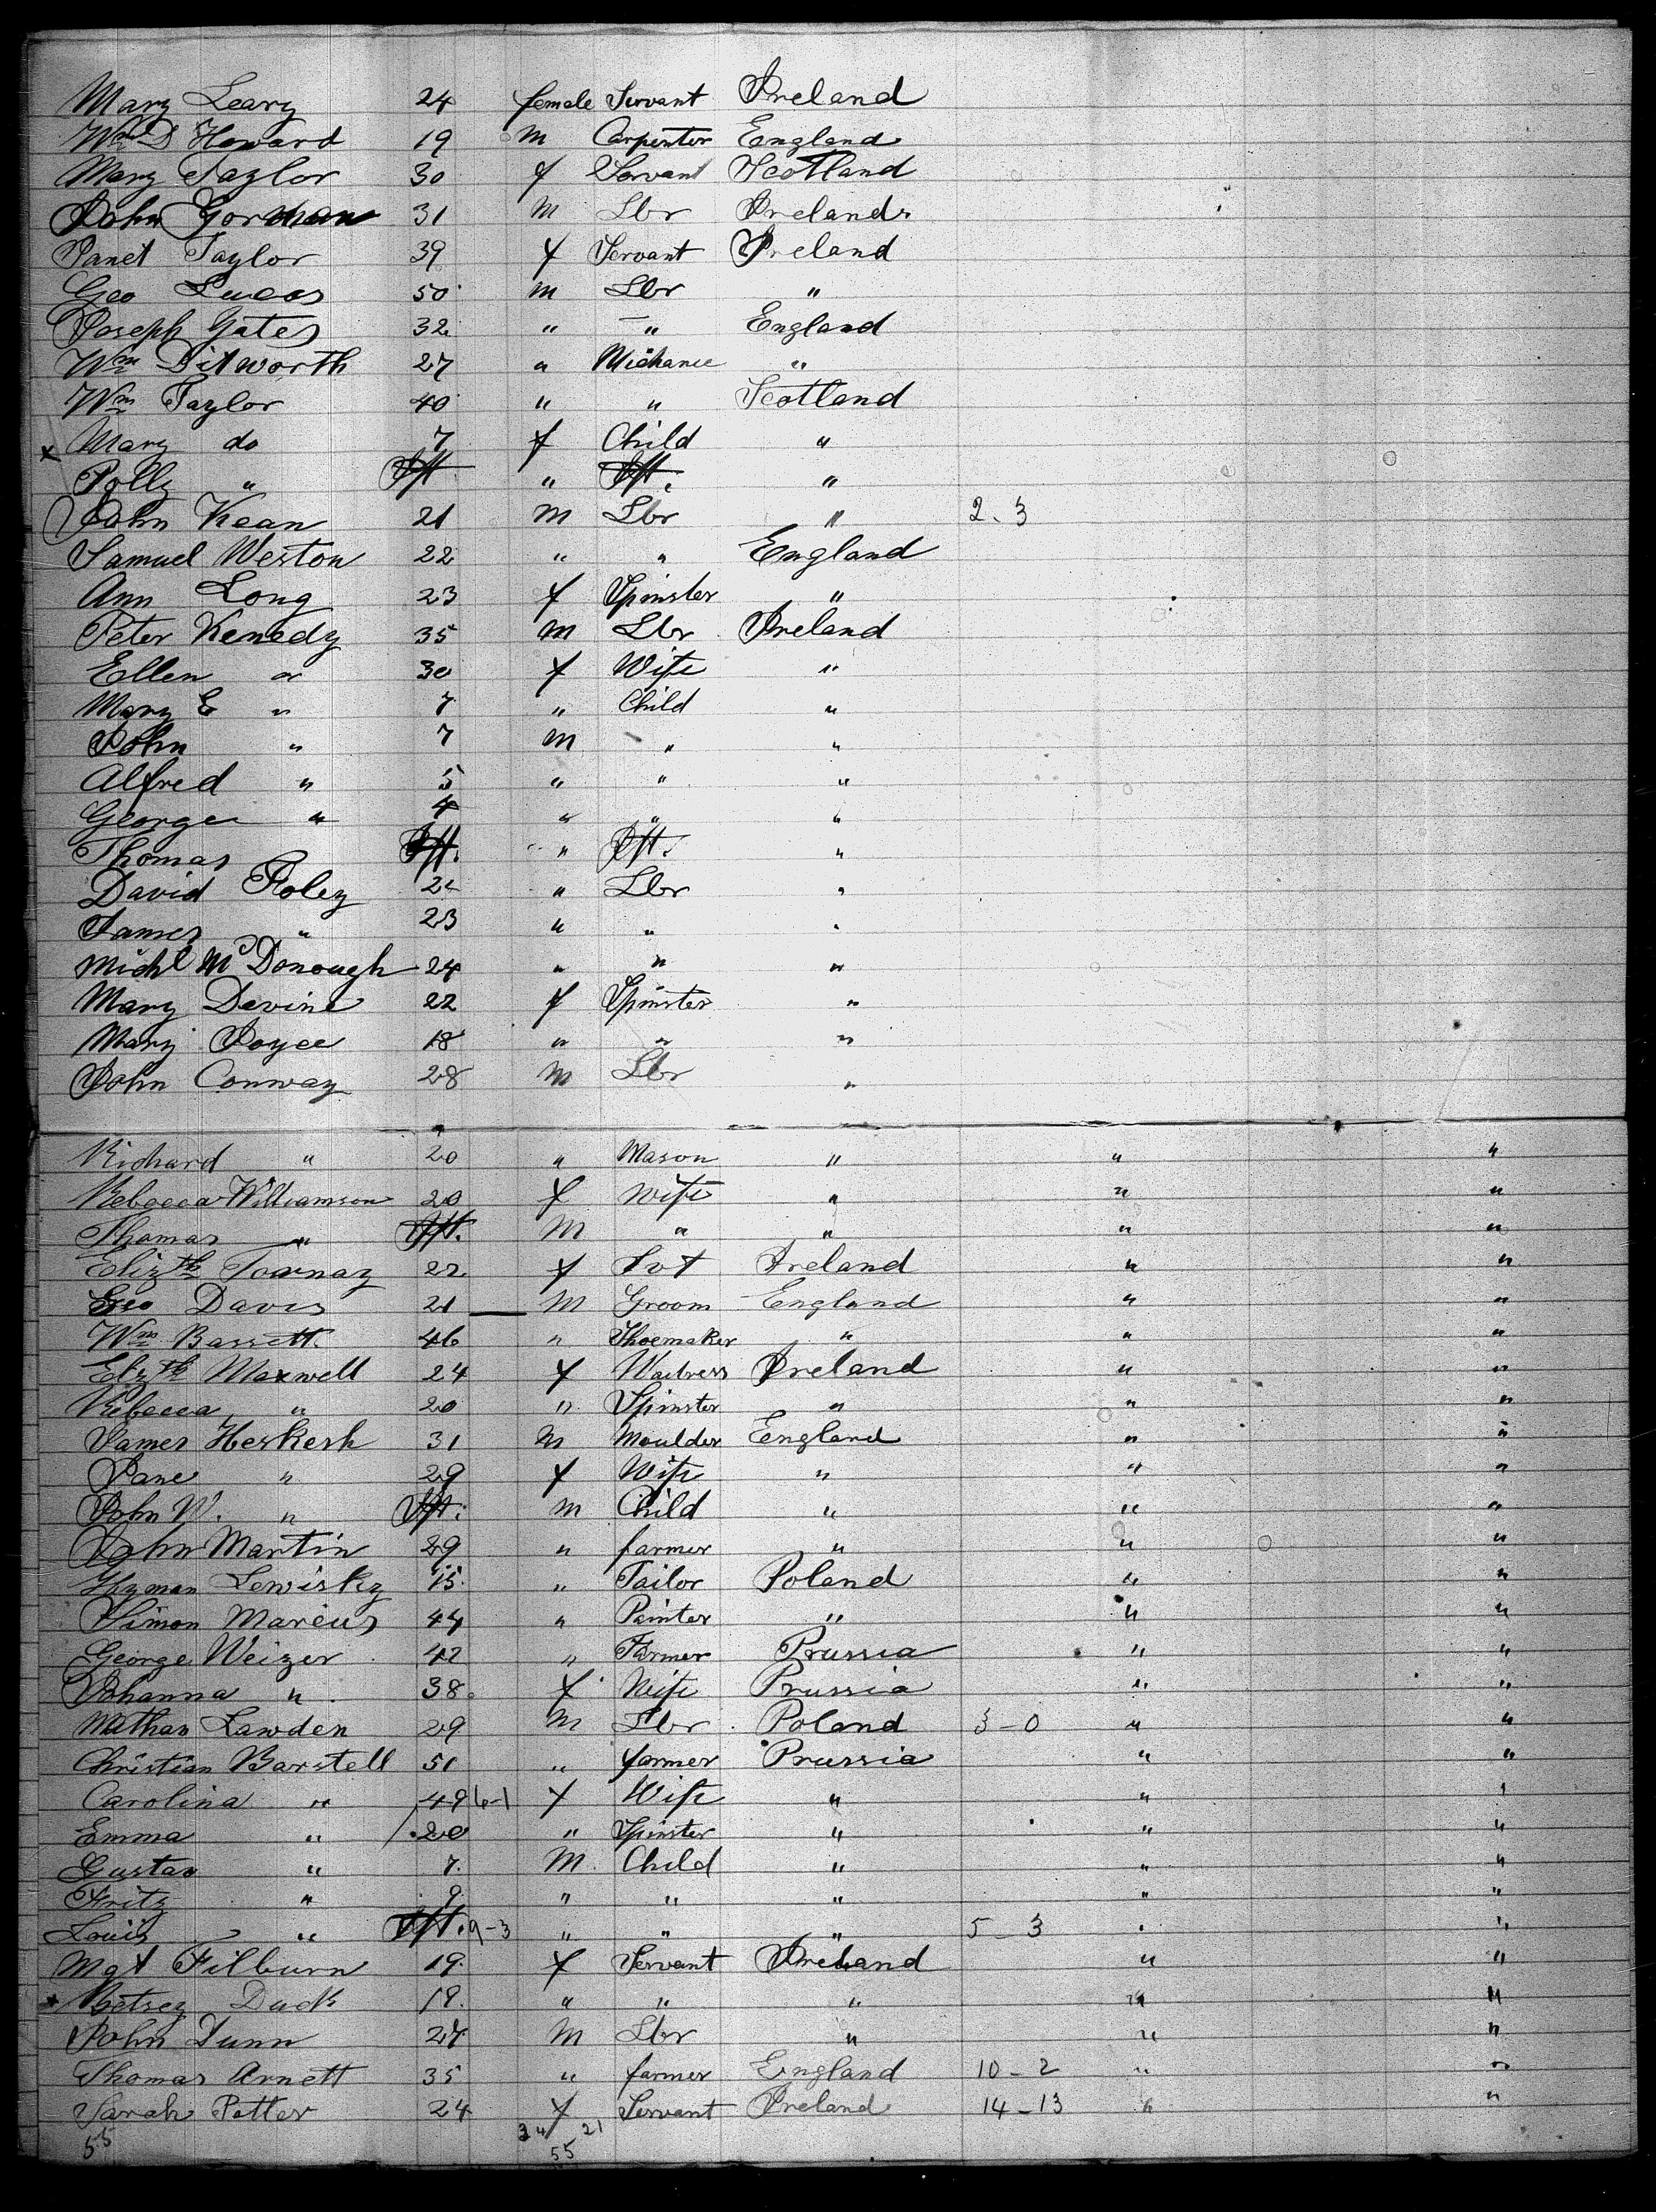 Mary Leary 24 female Servant Ireland
Wm D Howard 19 m Carpenter England
Mary Taylor 30 f Servant Scotland
John Gorman 31 m Lbr Ireland
Janet Taylor 39 f Servant Ireland
Geo Lucas 50 m Lbr "
Joseph Yates 32 " " England
Wm Dilworth 27 " Michanic "
Wm Taylor 40 " " Scotland
x Mary do 7 f Child "
Polly " Ift " Ift. "
John Kean 21 m Lbr " 2.3
Samuel Weston 22 " " England
Ann Long 23 f Spinster "
Peter Kenedy 35 m Lbr Ireland
Ellen " 30 f Wife "
Mary E " 7 " Child "
John " 7 m " "
Alfred " 5 " " "
George " 4 " " "
Thomas Ift. " Ift. "
David Foley 22 " Lbr "
James " 23 " " "
Michl McDonough 24 " " "
Mary Devine 22 f Spinster "
Mary Joyce 18 " " "
John Conway 28 m Lbr "
Richard " 20 " Mason " " "
Rebecca Williamson 20 f Wife " " "
Thomas " Ift. M " " " "
Elizth 22 f Svt Ireland " "
Geo Davis 21 — M Groom England " "
Wm Bassett 46 " Shoemaker " " "
Elizth Maxwell 24 f Waitress Ireland " "
Rebecca " 20 " Spinster " " "
James Heskesh 31 m Moulder England " "
Jane " 29 f Wife " " "
John W. " Ift. m Child " " "
John Martin 29 " farmer " " "
Hyman Lewisky 15 " Tailor Poland " "
Simon Marcus 44 " Painter " " "
George Weizer 42 " Farmer Prussia " "
Johanna " 38 f Wife Prussia " "
Nathan Lawden 29 m Lbr Poland 3-0 " "
Christian Barstell 51 " farmer Prussia " "
Carolina " 49 6-1 f Wife " " "
Emma " 20 " Spinster " " "
Gustav " 7. M. Child " " "
Fritz " 9 " " " " "
Louis " Ift. 9-3 " " " 5-3 " "
Mgt Filburn 19 f Servant Ireland " "
Betsey Duck 18. " " " " "
John Dunn 27 m Lbr " " "
Thomas Arnett 35 " farmer England 10-2 " "
Sarah Potter 24 f Servant Ireland 14-13 " "
55 34 21
55